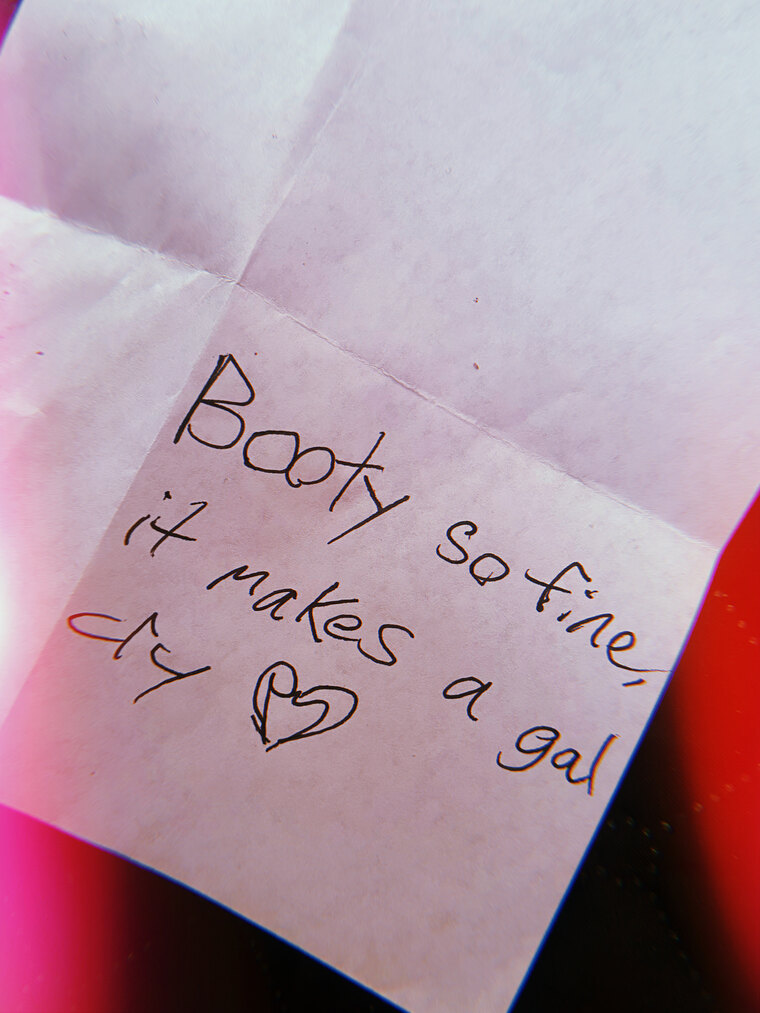 Booty so fine,
it makes a gal
cry